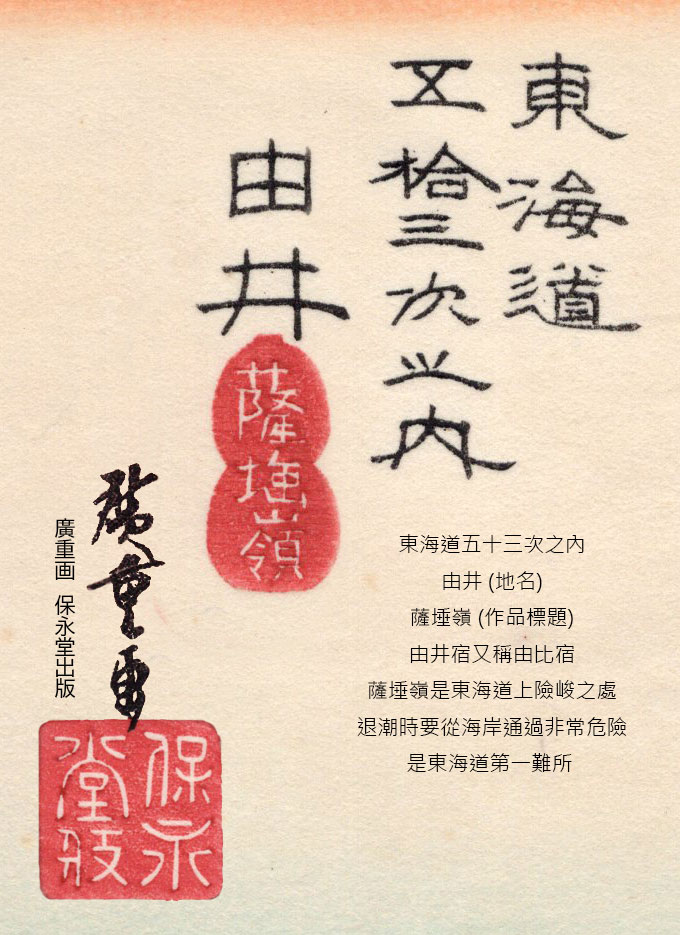 東海道
五拾三次之内
由井
薩埵嶺
廣重画
廣重画 保永堂出版
保永
堂版
東海道五十三次之內
由井 (地名)
薩埵嶺 (作品標題)
由井宿又稱由比宿
薩埵嶺是東海道上險峻之處
退潮時要從海岸通過非常危險
是東海道第一難所